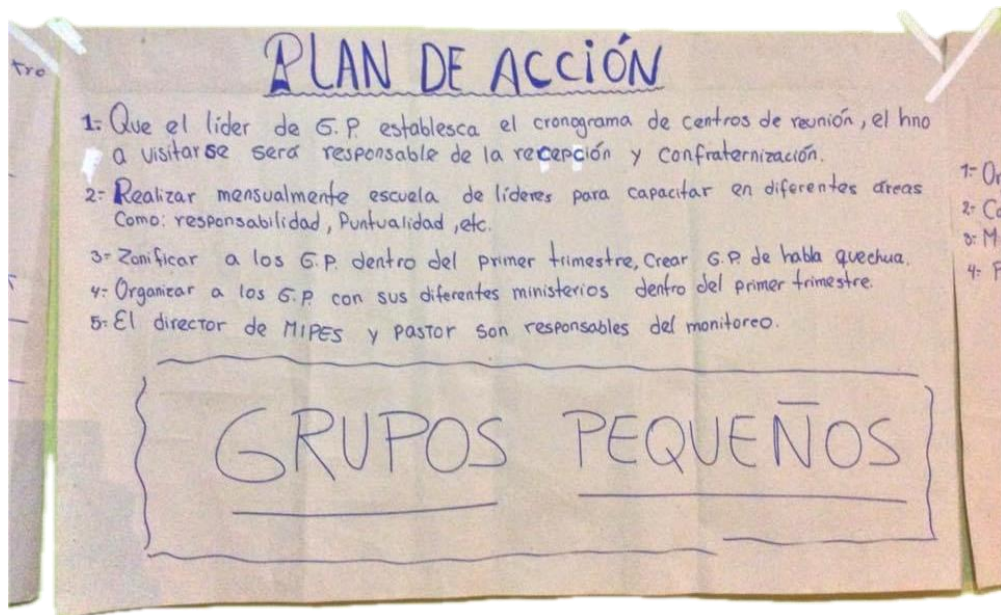 tro
PLAN DE ACCIÓN
1= Que el líder de G.P. establesca el cronograma de centros de reunión, el hno
a visitarse será responsable de la recepción y confraternización.
2= Realizar mensualmente escuela de líderes para capacitar en diferentes áreas
Como: responsabilidad, Puntualidad, etc.
3= Zonificar a los G.P. dentro del primer trimestre, Crear G.P. de habla quechua.
4= Organizar a los G.P. con sus diferentes ministerios dentro del primer trimestre.
5= El director de MIPES y pastor son responsables del monitoreo.
GRUPOS PEQUEÑOS
1=
2=
3=
4=